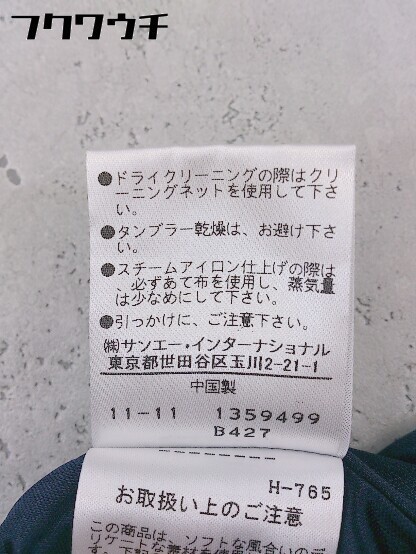 フクワウチ
●ドライクリーニングの際はクリ
ーニングネットを使用して下さ
い。
●タンブラー乾燥は、お避け下さ
い。
●スチームアイロン仕上げの際は
、必ずあて布を使用し、蒸気量
は少なめにして下さい。
●引っかけに、ご注意下さい。
㈱サンエー・インターナショナル
東京都世田谷区玉川2-21-1
中国製
11-11 1359499
B427
H-765
お取扱い上のご注意
この商品は、ソフトな風合いの